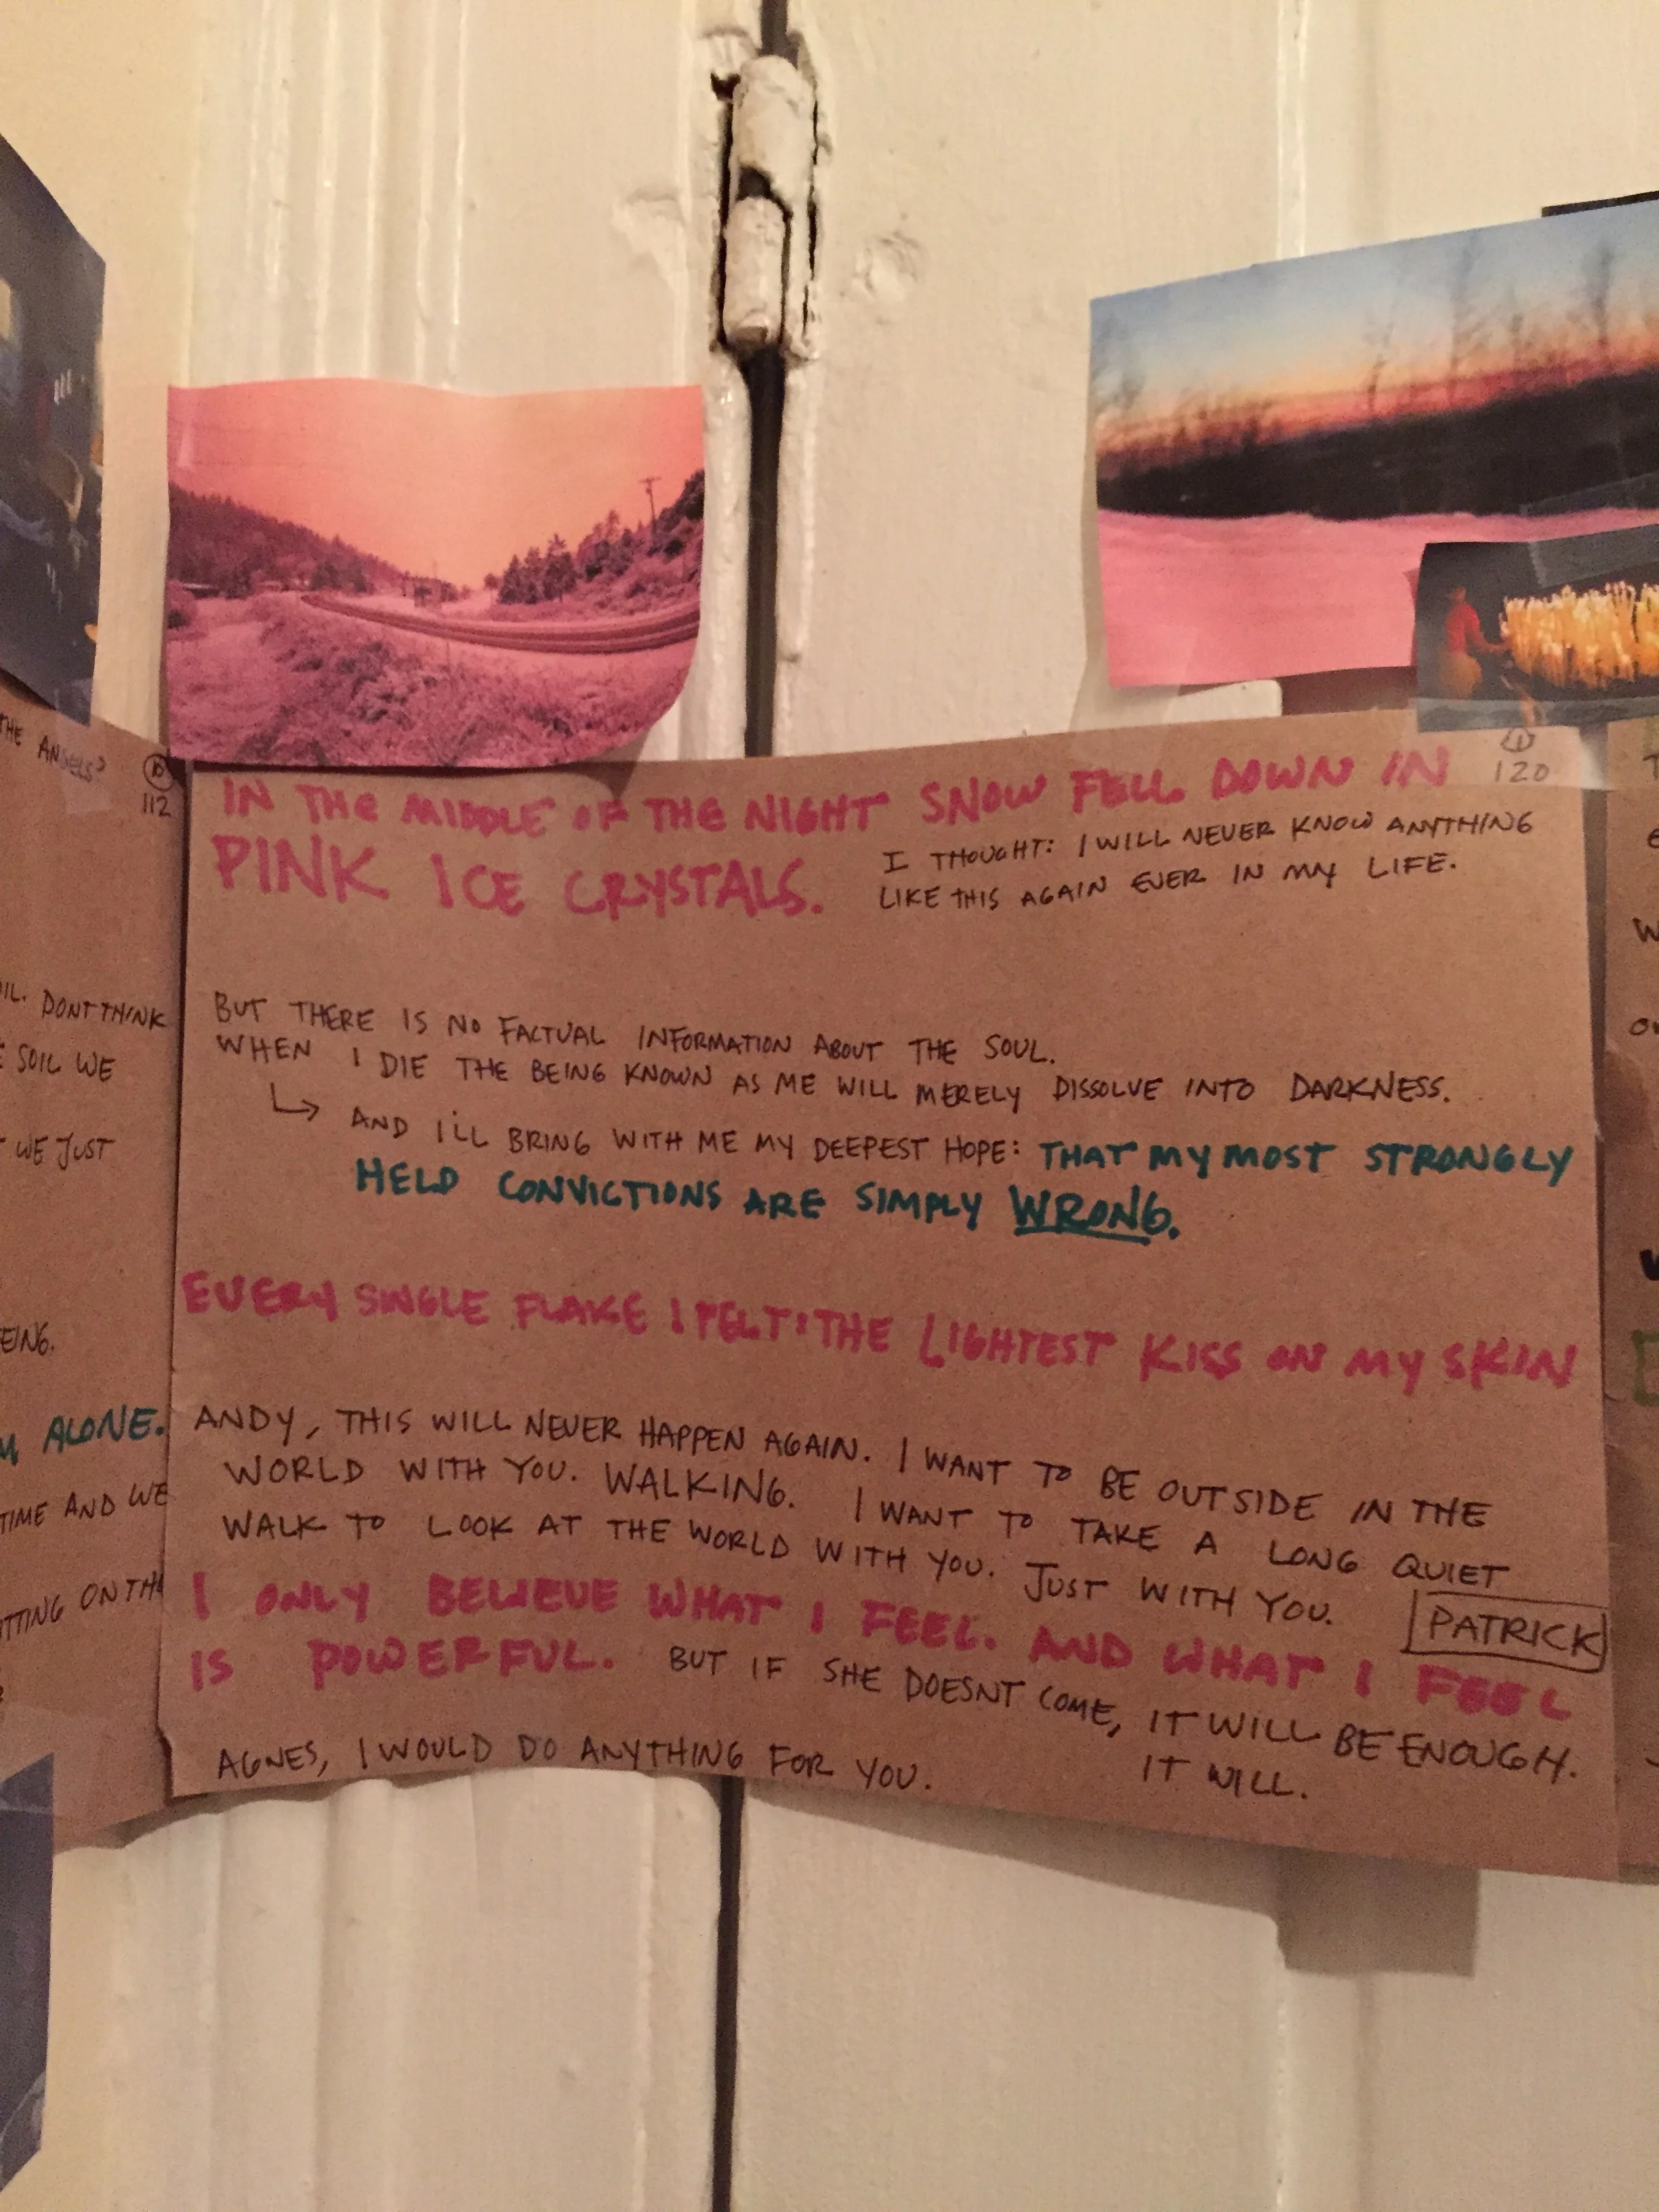 THE ANGELS?
10
112
IL. DONT THINK
SOIL WE
WE JUST
EING.
ALONE.
TIME AND WE
TTING ON THE
1
120
IN THE MIDDLE OF THE NIGHT SNOW FELL DOWN IN
PINK ICE CRYSTALS.
I THOUGHT: I WILL NEVER KNOW ANYTHING
LIKE THIS AGAIN EVER IN MY LIFE.
BUT THERE IS NO FACTUAL INFORMATION ABOUT THE SOUL.
WHEN I DIE THE BEING KNOWN AS ME WILL MERELY DISSOLVE INTO DARKNESS.
↳ AND I'LL BRING WITH ME MY DEEPEST HOPE: THAT MY MOST STRONGLY
HELD CONVICTIONS ARE SIMPLY WRONG.
EVERY SINGLE FLAKE I FELT: THE LIGHTEST KISS ON MY SKIN
ANDY, THIS WILL NEVER HAPPEN AGAIN. I WANT TO BE OUTSIDE IN THE
WORLD WITH YOU. WALKING. I WANT TO TAKE A LONG QUIET
WALK TO LOOK AT THE WORLD WITH YOU. JUST WITH YOU.
PATRICK
I ONLY BELIEVE WHAT I FEEL. AND WHAT I FEEL
IS POWERFUL. BUT IF SHE DOESNT COME, IT WILL BE ENOUGH.
IT WILL.
AGNES, I WOULD DO ANYTHING FOR YOU.